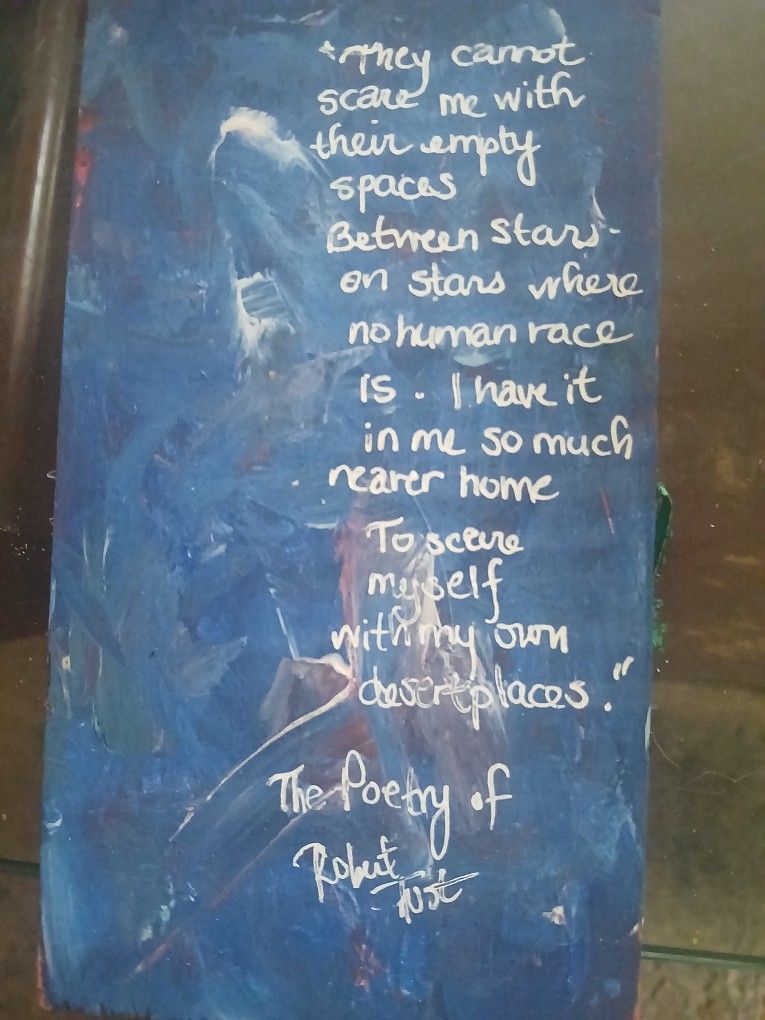 "They cannot
scare me with
their empty
spaces
Between stars-
on stars where
no human race
is. I have it
in me so much
nearer home
To scare
myself
with my own
desert places."
The Poetry of
Robert
Frost